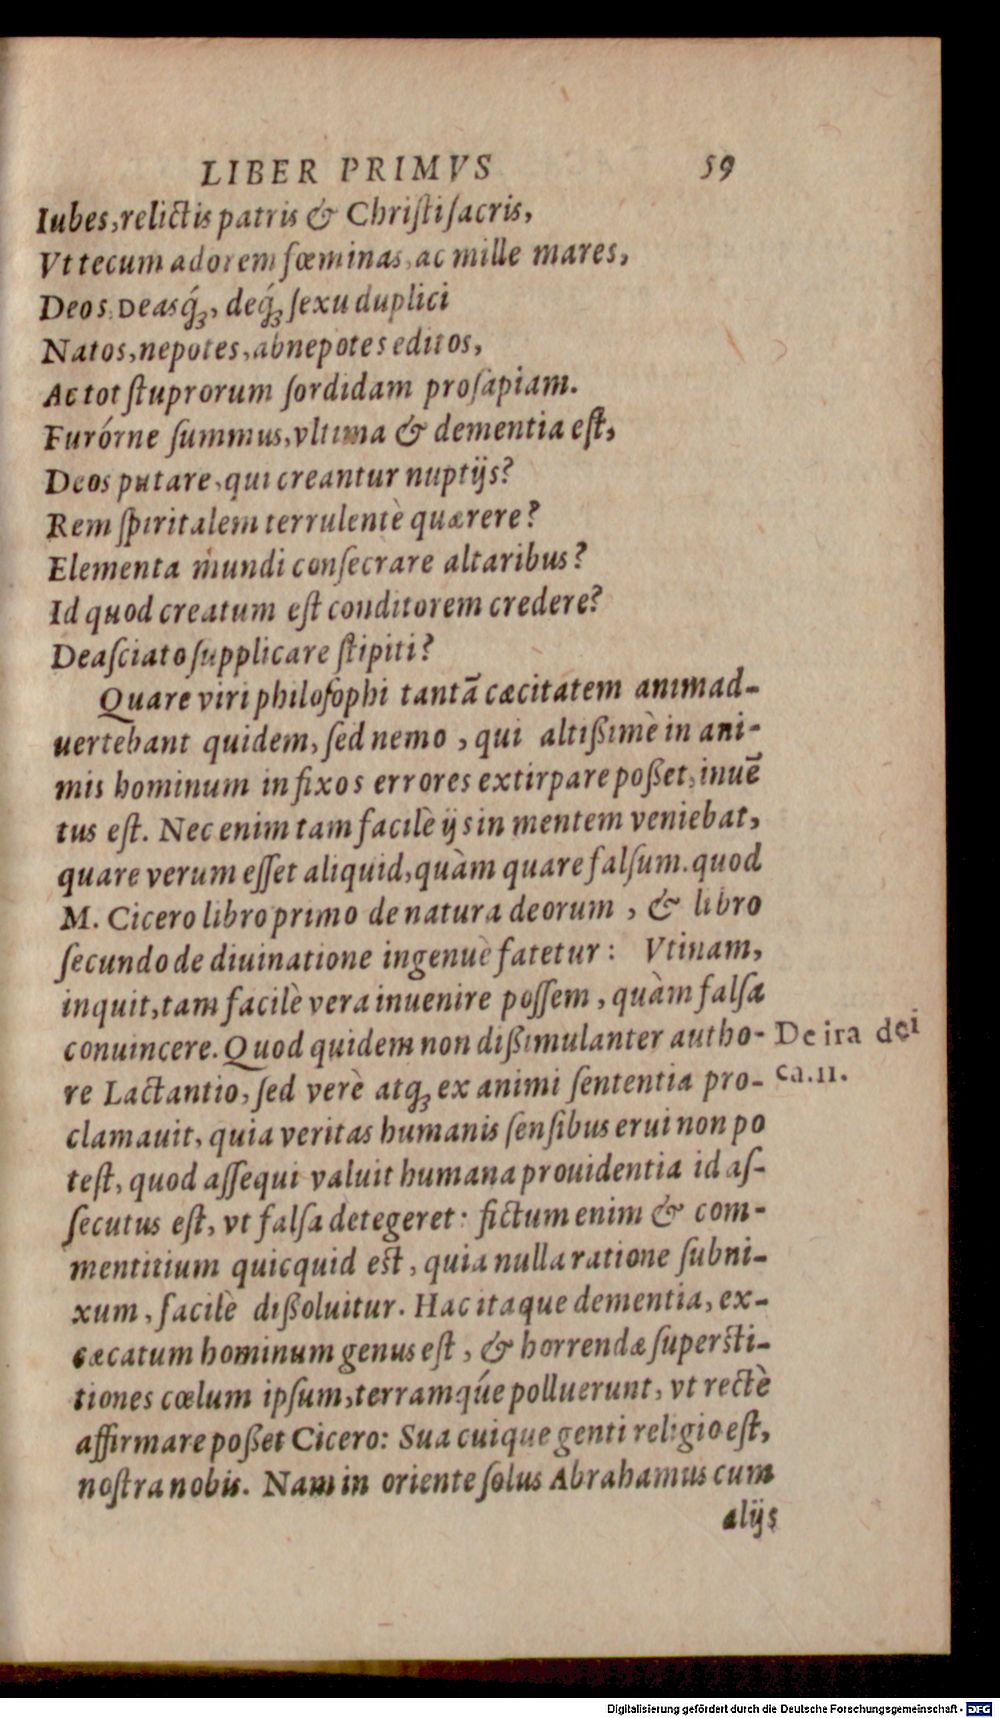 LIBER PRIMVS 59
Iubes, relictis patris & Christi sacris,
Vt tecum adorem fœminas, ac mille mares,
Deos, Deasq́ꝫ, deq́ꝫ sexu duplici
Natos, nepotes, abnepotes editos,
Ac tot stuprorum sordidam prosapiam.
Furórne summus, vltima & dementia est,
Deos putare, qui creantur nuptijs?
Rem spiritalem terrulentè quærere?
Elementa mundi consecrare altaribus?
Id quod creatum est conditorem credere?
Deasciato supplicare stipiti?
Quare viri philosophi tantã cæcitatem animad-
uertebant quidem, sed nemo, qui altißimè in ani-
mis hominum infixos errores extirpare poßet, inuẽ
tus est. Nec enim tam facilè ijs in mentem veniebat,
quare verum esset aliquid, quàm quare falsum. quod
M. Cicero libro primo de natura deorum, & libro
secundo de diuinatione ingenuè fatetur: Vtinam,
inquit, tam facilè vera inuenire possem, quàm falsa
conuincere. Quod quidem non dißimulanter autho-
De ira dei
re Lactantio, sed verè atqꝫ ex animi sententia pro-
ca.11.
clamauit, quia veritas humanis sensibus erui non po
test, quod assequi valuit humana prouidentia id as-
secutus est, vt falsa detegeret: fictum enim & com-
mentitium quicquid est, quia nulla ratione subni-
xum, facilè dißoluitur. Hac itaque dementia, ex-
cæcatum hominum genus est, & horrendæ supersti-
tiones cœlum ipsum, terramq́ue polluerunt, vt rectè
affirmare poßet Cicero: Sua cuique genti religio est,
nostra nobis. Nam in oriente solus Abrahamus cum
alijs
Digitalisierung gefördert durch die Deutsche Forschungsgemeinschaft - DFG